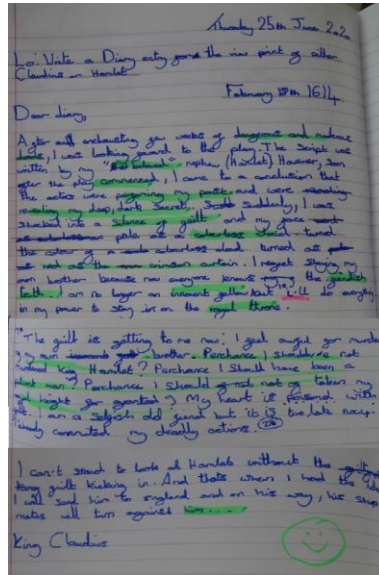 Thursday 25th June 2020
Lo: Write a Diary entry from the view point of either
Claudius or Hamlet
February 1614
Dear diary,
After an exhausting few weeks of dangerous and
I was looking forward to the play. The script was
written by my "beloved" nephew (Hamlet) However, soon
after the play commenced, I came to a conclusion that
the actors were my and were
revealing my deep, dark secrets. Suddenly, I was
shocked into a silence of guilt and my face
pale
the colour of a cloud turned as
red as the crimson curtain. I regret slaying my
own brother because now everyone knows the
truth. I am no longer an innocent fellow but I will do everything
in my power to stay in on the royal throne.
The guilt is getting to me now: I feel awful for
my own brother. Perchance I should not
King Hamlet? Perchance I should have been a
man? Perchance I should not of taken my
for granted? My heart is with
I am a selfish old but it is too late now.
committed my deadly actions.
I can't stand to look at Hamlet without the
guilt kicking in. And thats when I had the
I will send him to england and on his way, his ship
mates will turn against him....
King Claudius